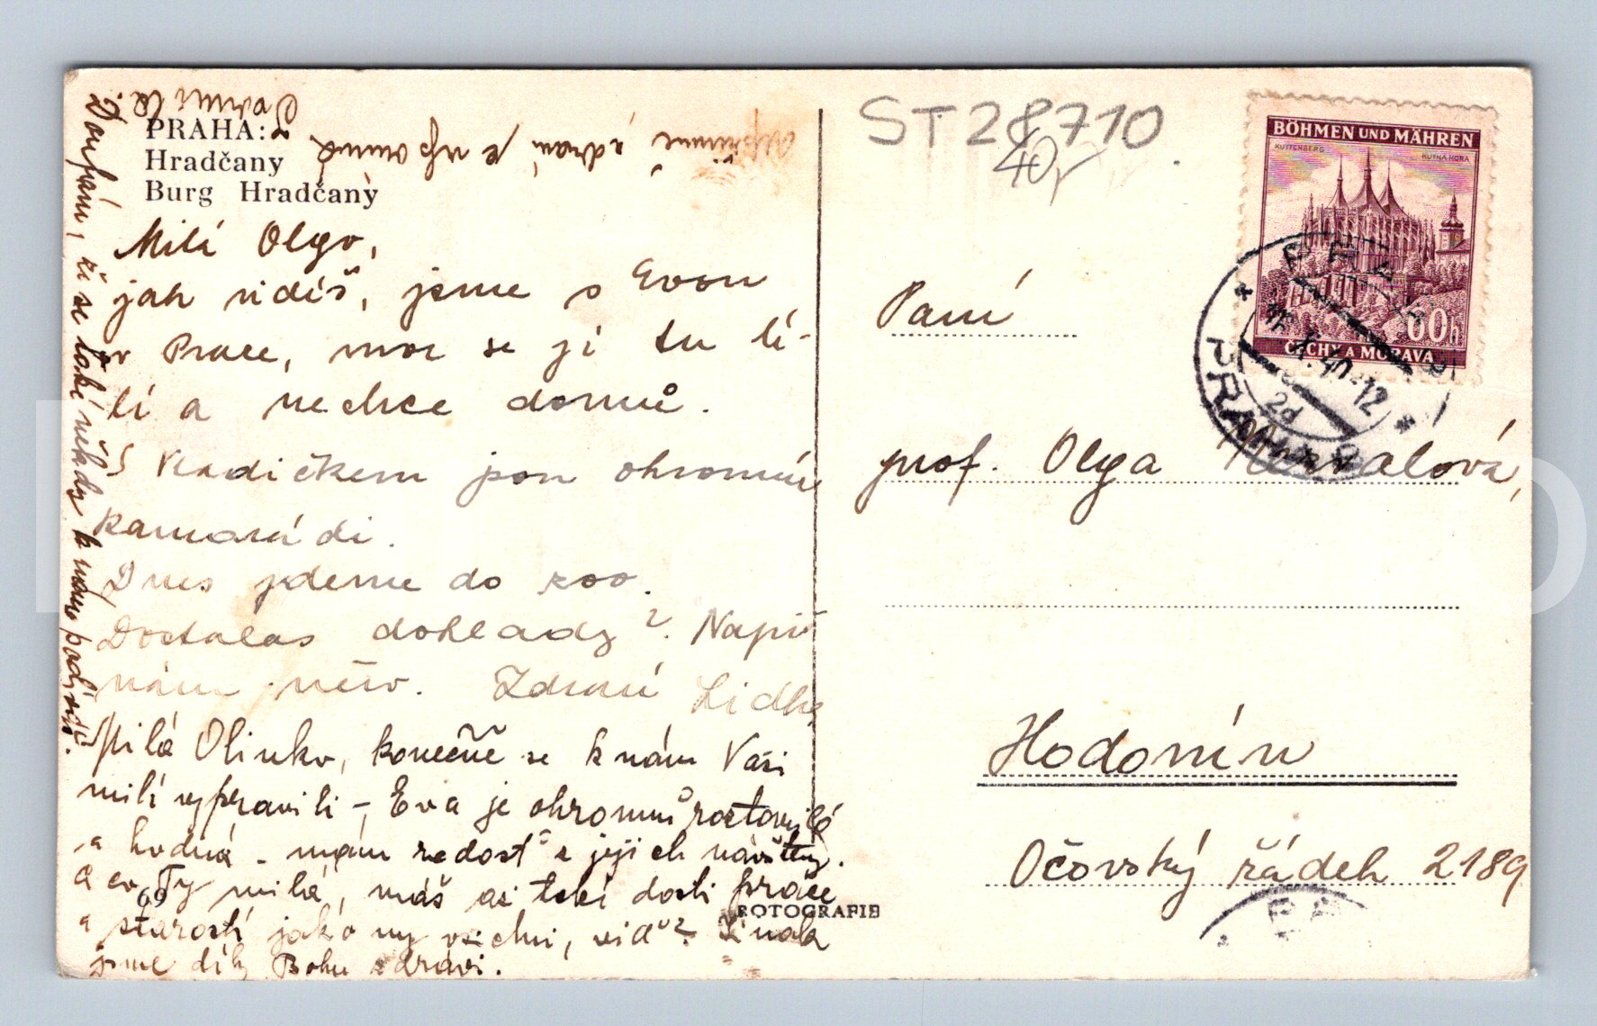 PRAHA:
Hradčany
Burg Hradčany
Milá Olgo,
jak vidíš, jsme s Evou
v Praze, moc se jí tu lí-
bí a nechce domů.
S Vladíčkem jsou ohromní
kamarádi.
Dnes jdeme do zoo.
Dostalas doklady? Napiš
nám něco. Zdraví Lidka
Milá Olinko, konečně se k nám Vaši
milí vypravili – Eva je ohromně roztomilá
a hodná – mám radost z jejich návštěvy.
A co Ty milá, máš asi též dosti práce
a starostí jako my všichni, viď? Jinak
jsme díky Bohu zdrávi.
Doufám, že se také někdy k nám podíváš.
Upřímně zdraví a vzpomíná
ST 28710
40,-
BÖHMEN UND MÄHREN
KUTTENBERG
KUTNÁ HORA
60h
ČECHY A MORAVA
PRAHA
2d
Paní
prof. Olga
Hodonín
Očovský řádek 2189
FOTOGRAFIE